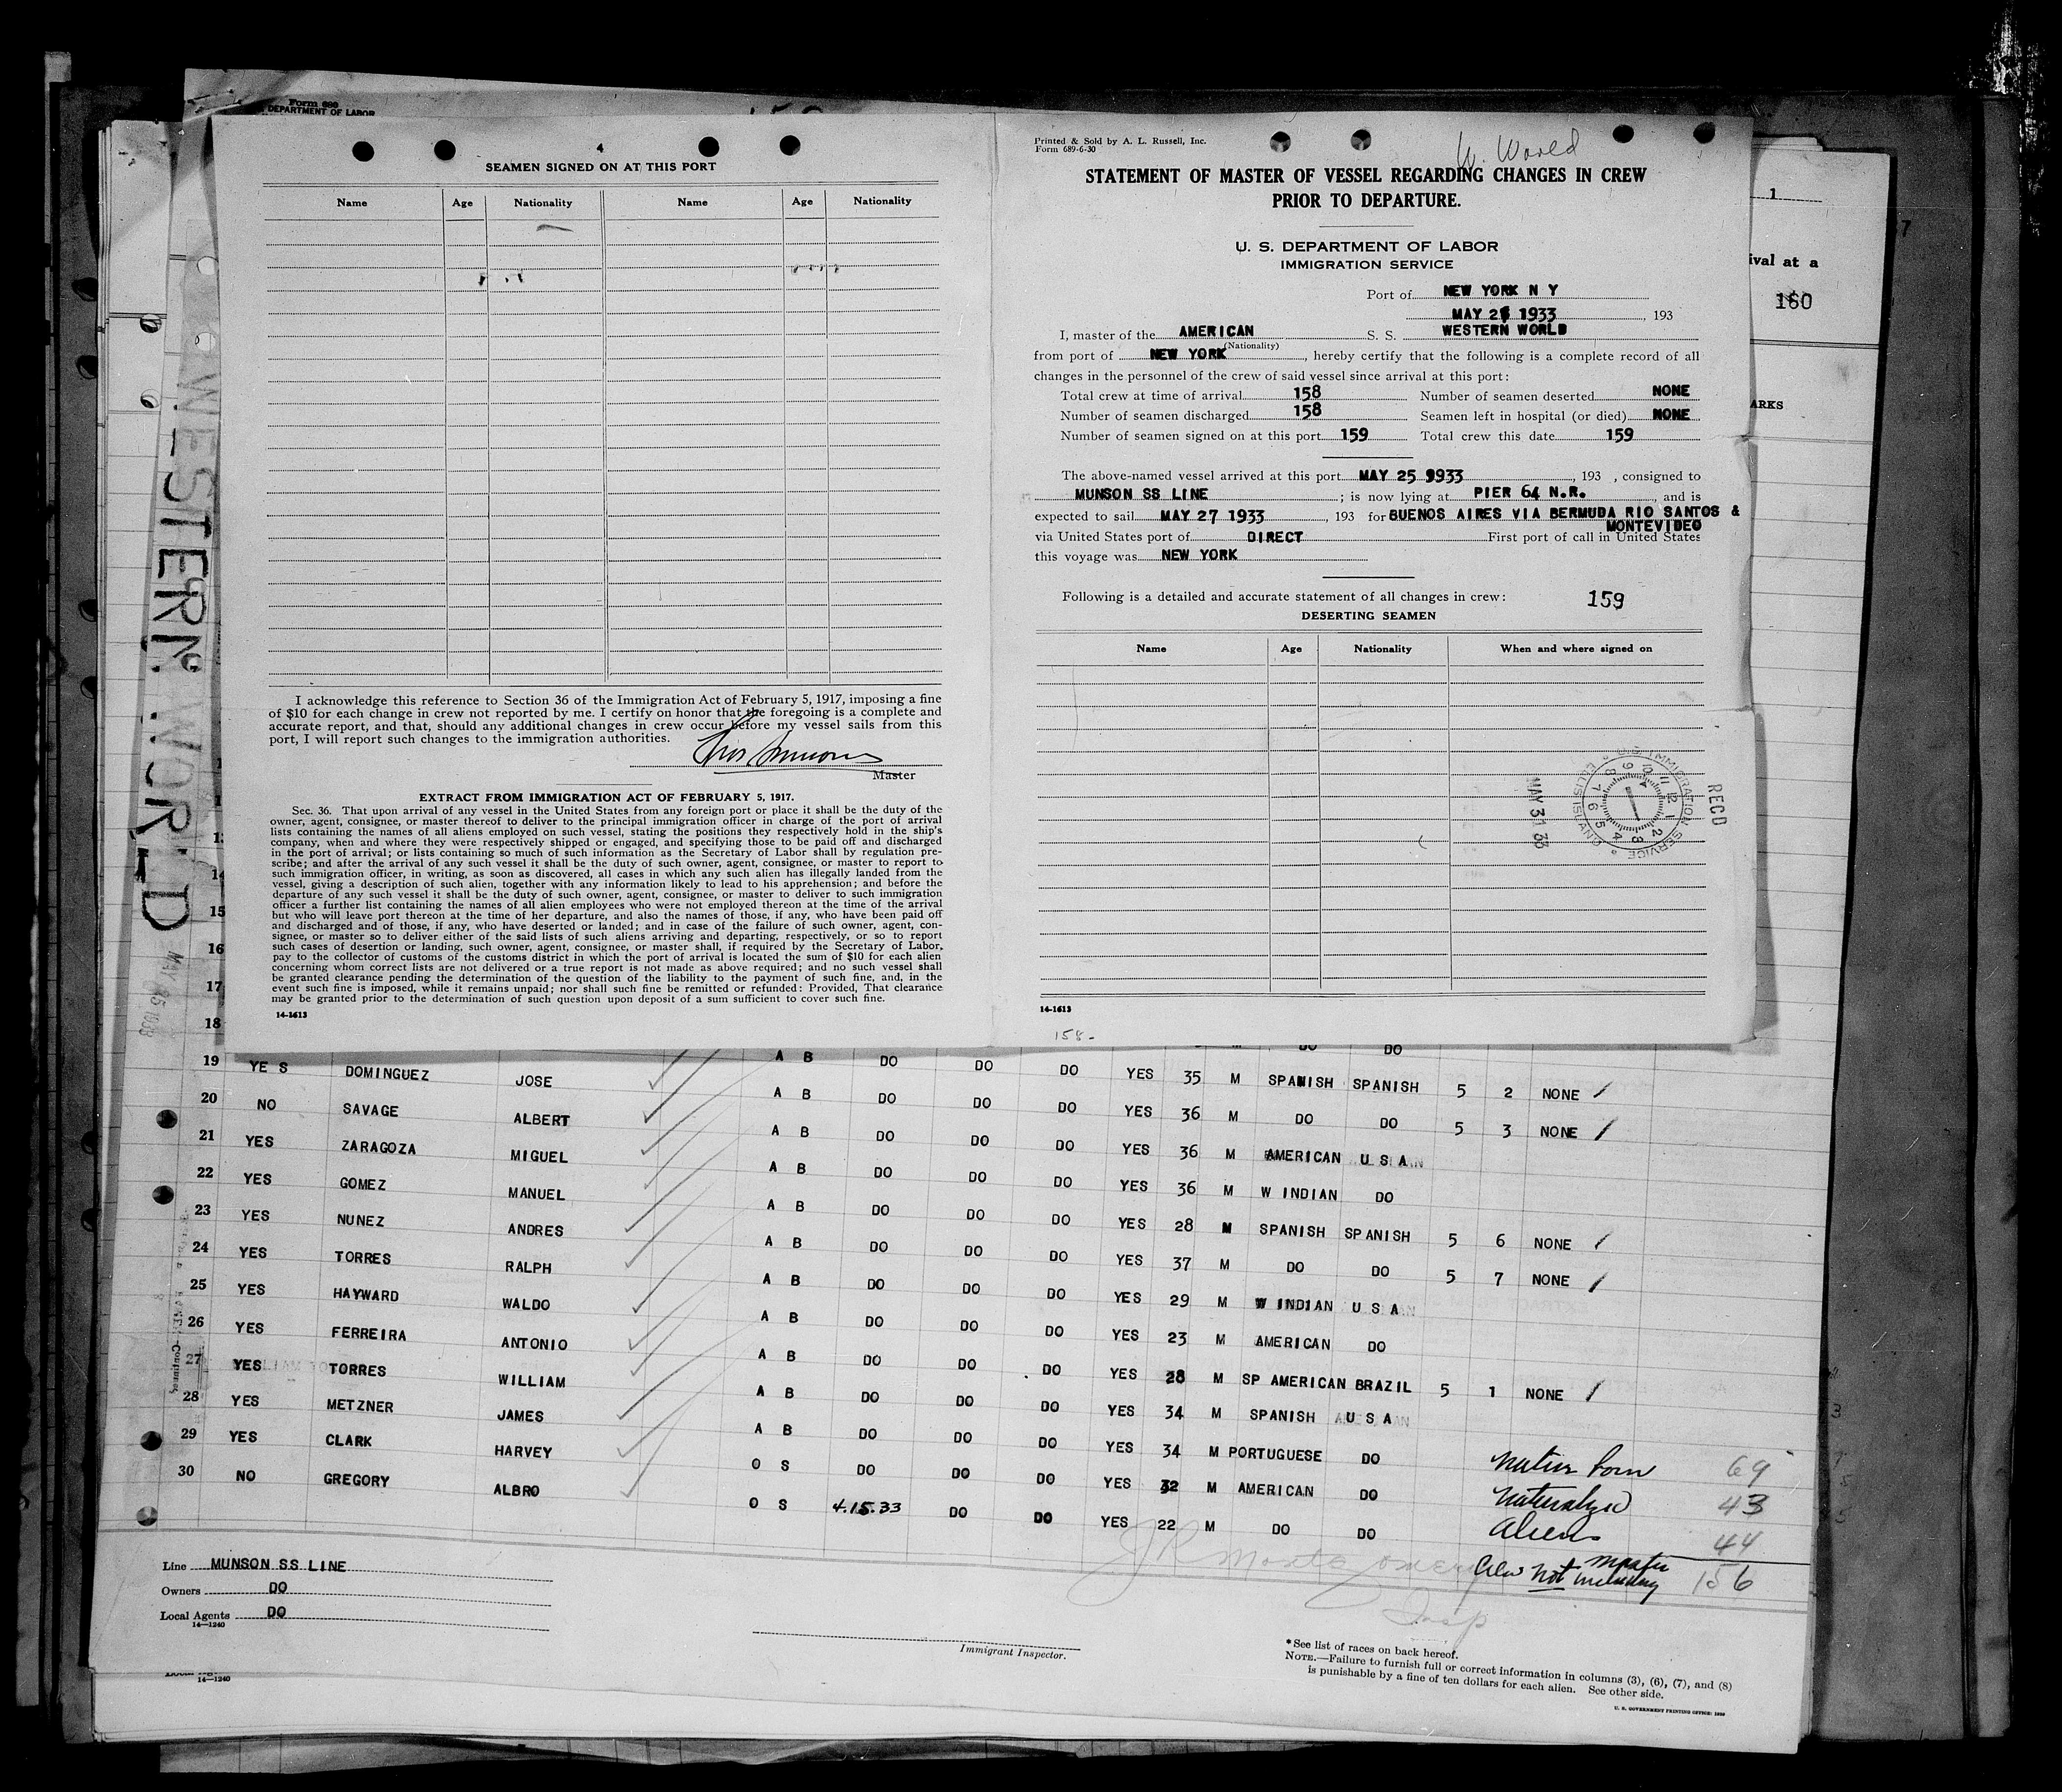 Form 689
DEPARTMENT OF LABOR
4
SEAMEN SIGNED ON AT THIS PORT
Name Age Nationality Name Age Nationality
I acknowledge this reference to Section 36 of the Immigration Act of February 5, 1917, imposing a fine
of $10 for each change in crew not reported by me. I certify on honor that the foregoing is a complete and
accurate report, and that, should any additional changes in crew occur before my vessel sails from this
port, I will report such changes to the immigration authorities.
Master
EXTRACT FROM IMMIGRATION ACT OF FEBRUARY 5, 1917.
Sec. 36. That upon arrival of any vessel in the United States from any foreign port or place it shall be the duty of the
owner, agent, consignee, or master thereof to deliver to the principal immigration officer in charge of the port of arrival
lists containing the names of all aliens employed on such vessel, stating the positions they respectively hold in the ship's
company, when and where they were respectively shipped or engaged, and specifying those to be paid off and discharged
in the port of arrival; or lists containing so much of such information as the Secretary of Labor shall by regulation pre-
scribe; and after the arrival of any such vessel it shall be the duty of such owner, agent, consignee, or master to report to
such immigration officer, in writing, as soon as discovered, all cases in which any such alien has illegally landed from the
vessel, giving a description of such alien, together with any information likely to lead to his apprehension; and before the
departure of any such vessel it shall be the duty of such owner, agent, consignee, or master to deliver to such immigration
officer a further list containing the names of all alien employees who were not employed thereon at the time of the arrival
but who will leave port thereon at the time of her departure, and also the names of those, if any, who have been paid off
and discharged and of those, if any, who have deserted or landed; and in case of the failure of such owner, agent, con-
signee, or master so to deliver either of the said lists of such aliens arriving and departing, respectively, or so to report
such cases of desertion or landing, such owner, agent, consignee, or master shall, if required by the Secretary of Labor,
pay to the collector of customs of the customs district in which the port of arrival is located the sum of $10 for each alien
concerning whom correct lists are not delivered or a true report is not made as above required; and no such vessel shall
be granted clearance pending the determination of the question of the liability to the payment of such fine, and, in the
event such fine is imposed, while it remains unpaid; nor shall such fine be remitted or refunded: Provided, That clearance
may be granted prior to the determination of such question upon deposit of a sum sufficient to cover such fine.
14-1613
Printed & Sold by A. L. Russell, Inc.
Form 689-6-30
W. World
STATEMENT OF MASTER OF VESSEL REGARDING CHANGES IN CREW
PRIOR TO DEPARTURE.
U. S. DEPARTMENT OF LABOR
IMMIGRATION SERVICE
Port of NEW YORK N Y
MAY 26 1933, 193
I, master of the AMERICAN S. S. WESTERN WORLD
(Nationality)
from port of NEW YORK, hereby certify that the following is a complete record of all
changes in the personnel of the crew of said vessel since arrival at this port:
Total crew at time of arrival 158 Number of seamen deserted NONE
Number of seamen discharged 158 Seamen left in hospital (or died) NONE
Number of seamen signed on at this port 159 Total crew this date 159
The above-named vessel arrived at this port MAY 25 1933, 193 , consigned to
MUNSON SS LINE; is now lying at PIER 64 N.R., and is
expected to sail MAY 27 1933, 193 for BUENOS AIRES VIA BERMUDA RIO SANTOS &
MONTEVIDEO
via United States port of DIRECT First port of call in United States
this voyage was NEW YORK
Following is a detailed and accurate statement of all changes in crew: 159
DESERTING SEAMEN
Name Age Nationality When and where signed on
RECD
U.S. IMMIGRATION SERVICE ELLIS ISLAND
MAY 31 33
14-1613
158-
1
ival at a
160
ARKS
WESTERN WORLD
MAY 25 1933
14
15
16
17
18 A B DO DO DO YES 35 M SPANISH SPANISH 5 2 NONE
19 YES DOMINGUEZ JOSE A B DO DO DO YES 36 M DO DO 5 3 NONE
20 NO SAVAGE ALBERT A B DO DO DO YES 36 M AMERICAN U S A
21 YES ZARAGOZA MIGUEL A B DO DO DO YES 36 M W INDIAN DO
22 YES GOMEZ MANUEL A B DO DO DO YES 28 M SPANISH SPANISH 5 6 NONE
23 YES NUNEZ ANDRES A B DO DO DO YES 37 M DO DO 5 7 NONE
24 YES TORRES RALPH A B DO DO DO YES 29 M W INDIAN U S A
25 YES HAYWARD WALDO A B DO DO DO YES 23 M AMERICAN DO
26 YES FERREIRA ANTONIO A B DO DO DO YES 28 M SP AMERICAN BRAZIL 5 1 NONE
27 YES TORRES WILLIAM A B DO DO DO YES 34 M SPANISH U S A
28 YES METZNER JAMES A B DO DO DO YES 34 M PORTUGUESE DO
29 YES CLARK HARVEY O S DO DO DO YES 32 M AMERICAN DO
30 NO GREGORY ALBRO O S 4.15.33 DO DO YES 22 M DO DO
Native born 69
Naturalized 43
Aliens 44
Crew not including master 156
J R Montgomery
Insp
Line MUNSON SS LINE
Owners DO
Local Agents DO
14—1240
Immigrant Inspector.
*See list of races on back hereof.
NOTE.—Failure to furnish full or correct information in columns (3), (6), (7), and (8)
is punishable by a fine of ten dollars for each alien. See other side.
U. S. GOVERNMENT PRINTING OFFICE: 1930
14—1240